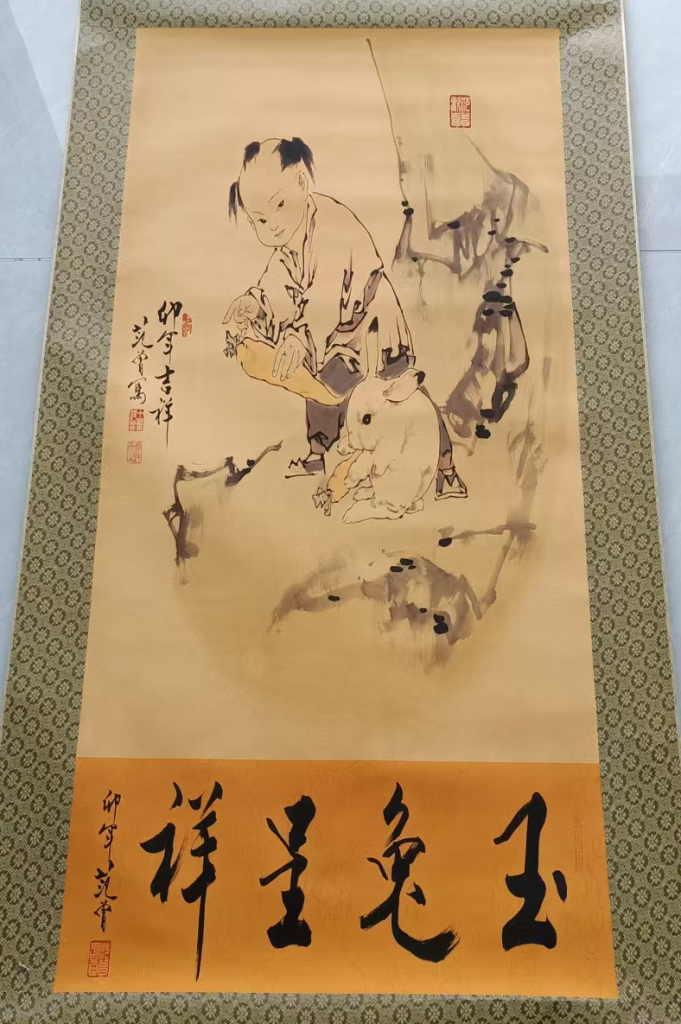 卯年吉祥
范曾写
玉兔呈祥
卯年范曾